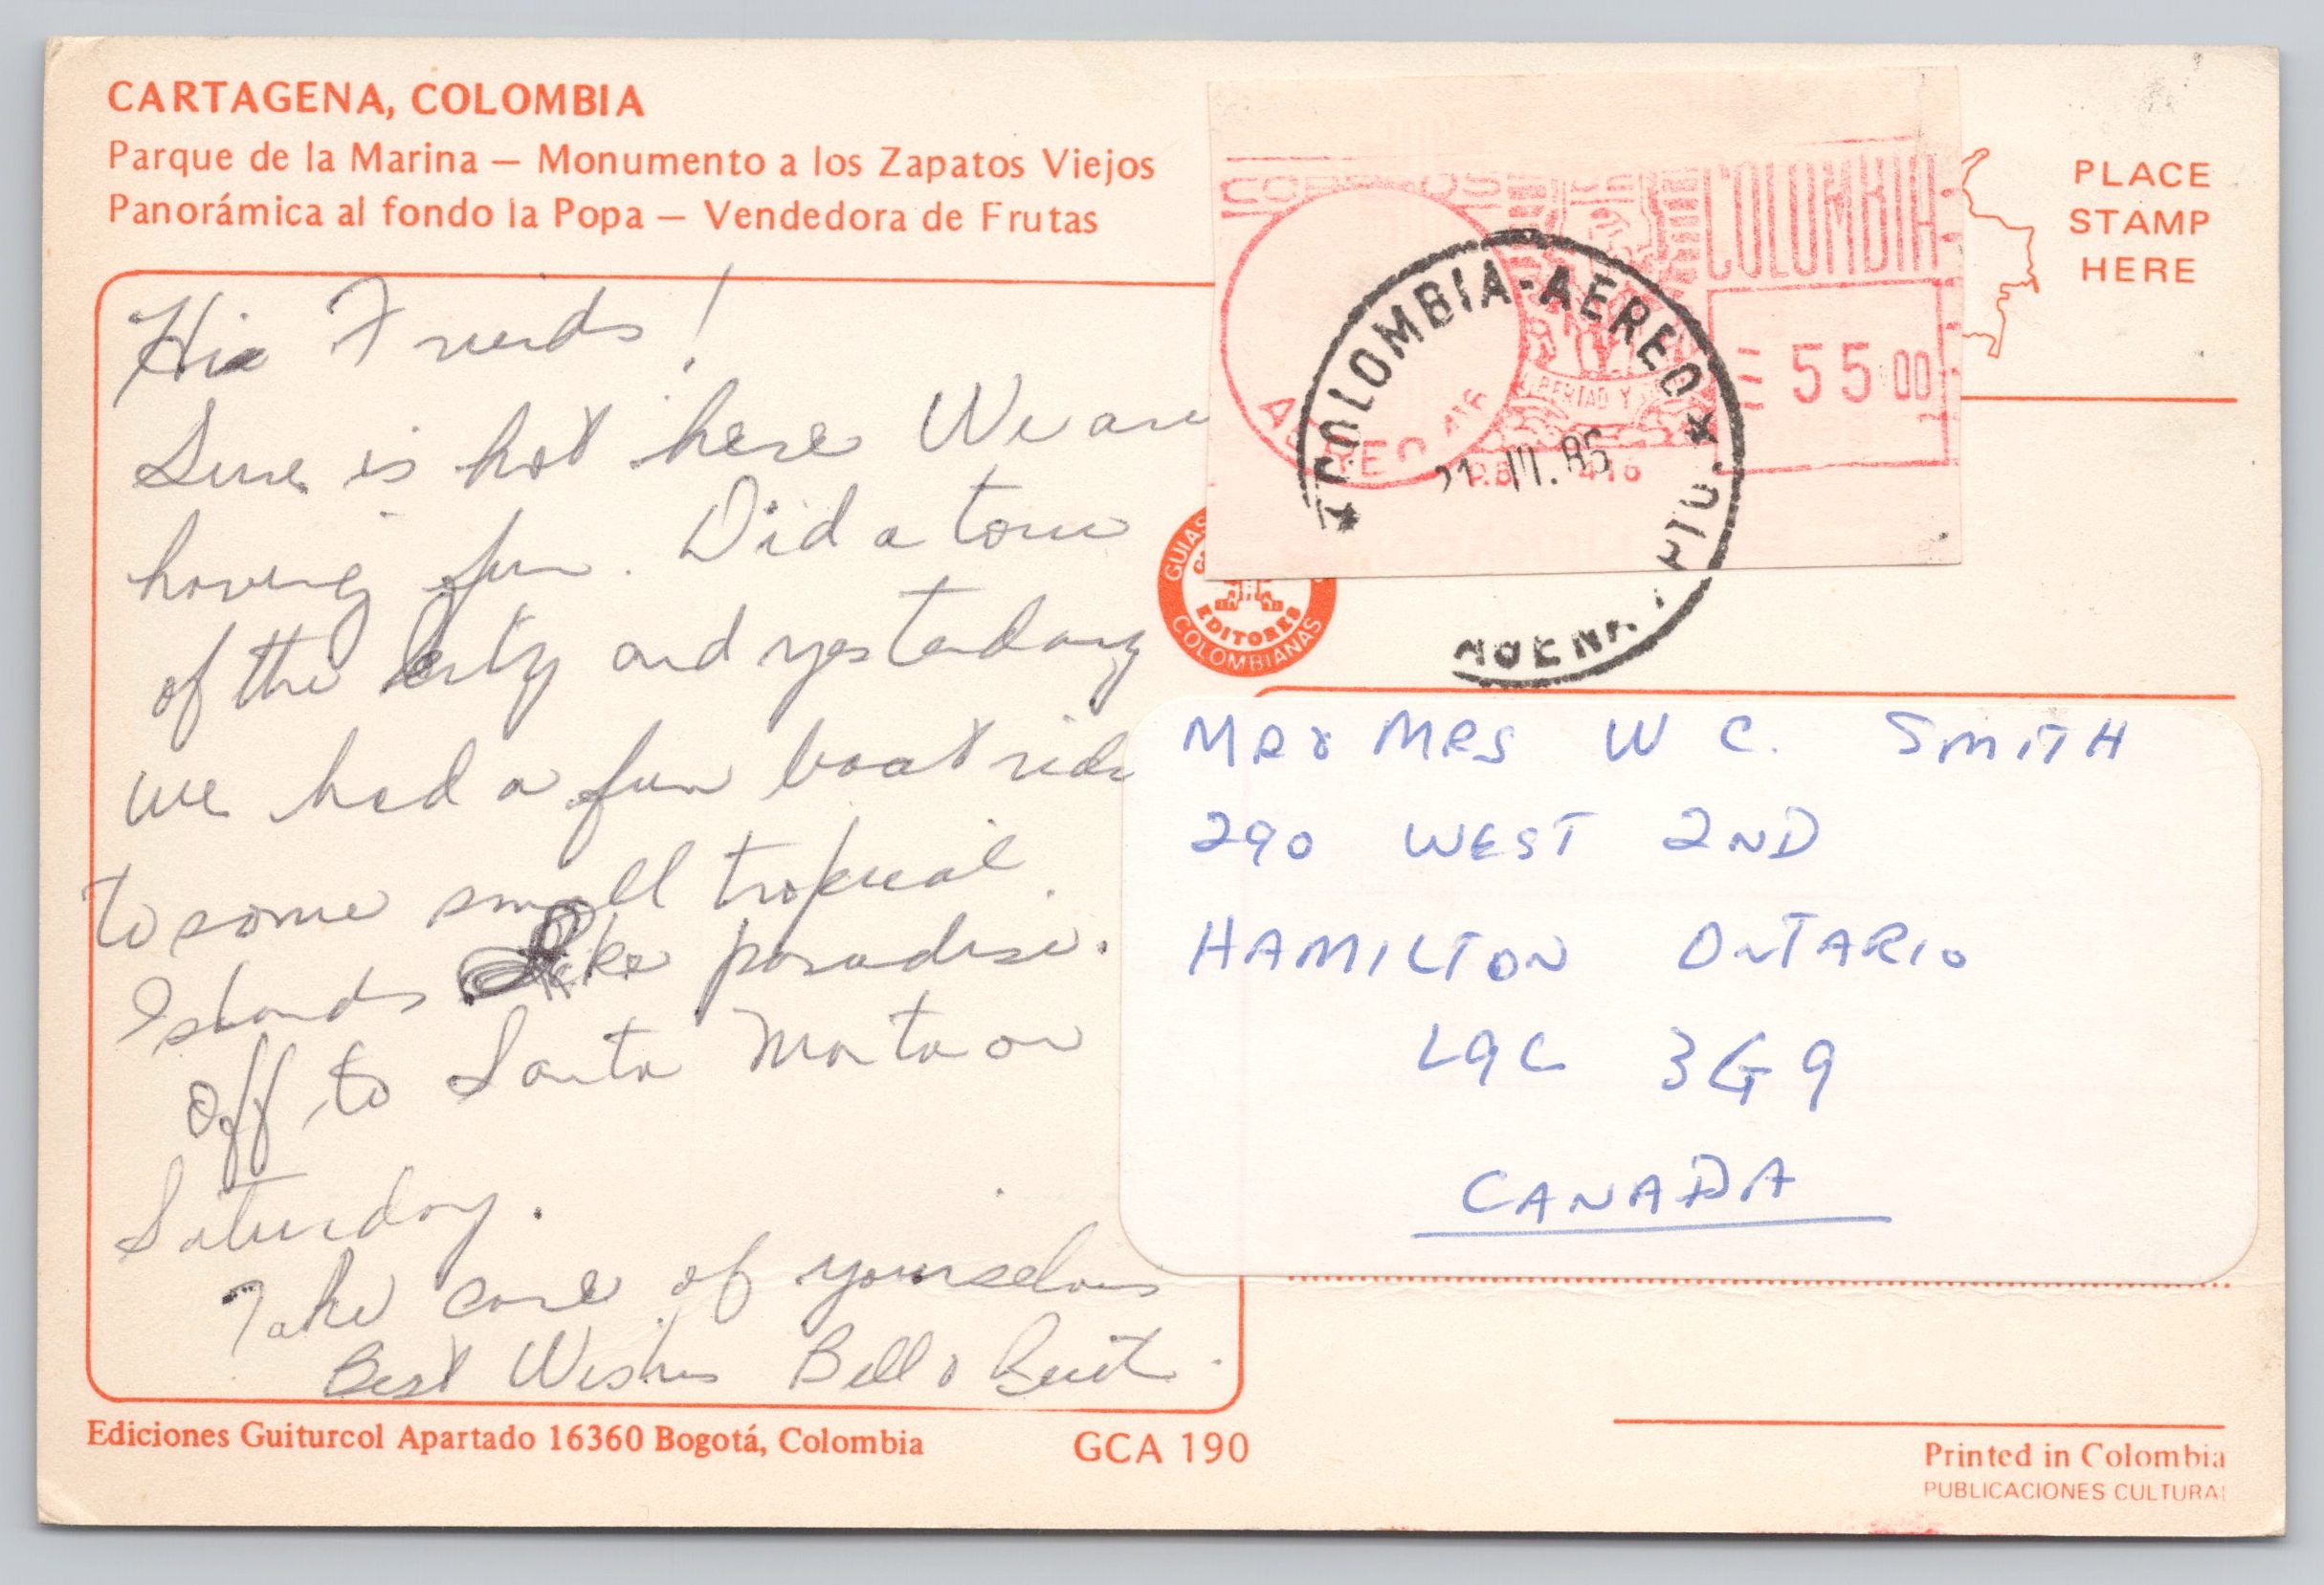 CARTAGENA, COLOMBIA
Parque de la Marina — Monumento a los Zapatos Viejos
Panorámica al fondo la Popa — Vendedora de Frutas
Hi Friends!
Sure is hot here We are
having fun. Did a tour
of the city and yesterday
we had a fun boat ride
to some small tropical
Islands like paradise.
Off to Santa Marta on
Saturday.
Take care of yourselves
Best Wishes Bill &
Ediciones Guiturcol Apartado 16360 Bogotá, Colombia
GCA 190
CORREOS
COLOMBIA
55.00
AEREO
LIBERTAD Y
P.B. 416
COLOMBIA-AEREO
21 III. 86
PLACE
STAMP
HERE
GUIAS
EDITORES
COLOMBIANAS
MR & MRS W C. SMITH
290 WEST 2ND
HAMILTON ONTARIO
L9C 3G9
CANADA
Printed in Colombia
PUBLICACIONES CULTURAL